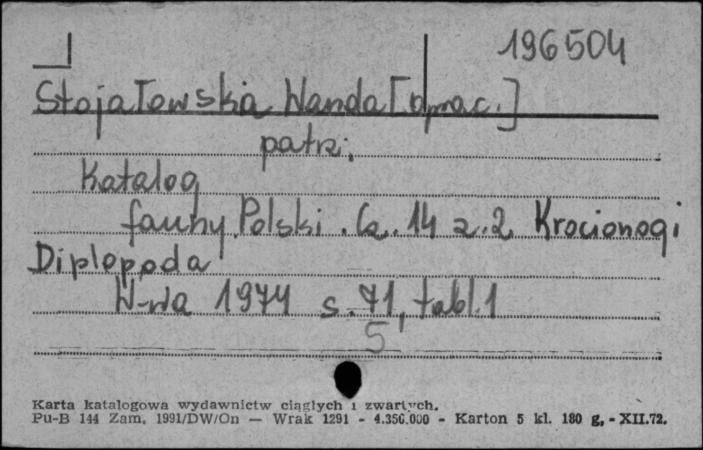 196504
Stojałowska Wanda [oprac.]
patrz:
Katalog
fauny Polski. Cz. 14 z. 2 Krocionogi
Diplopoda
W-wa 1974 s. 71, tabl. 1
5
Karta katalogowa wydawnictw ciągłych i zwartych.
Pu-B 144 Zam. 1991/DW/On — Wrak 1291 - 4.350.000 - Karton 5 kl. 180 g, - XII.72.